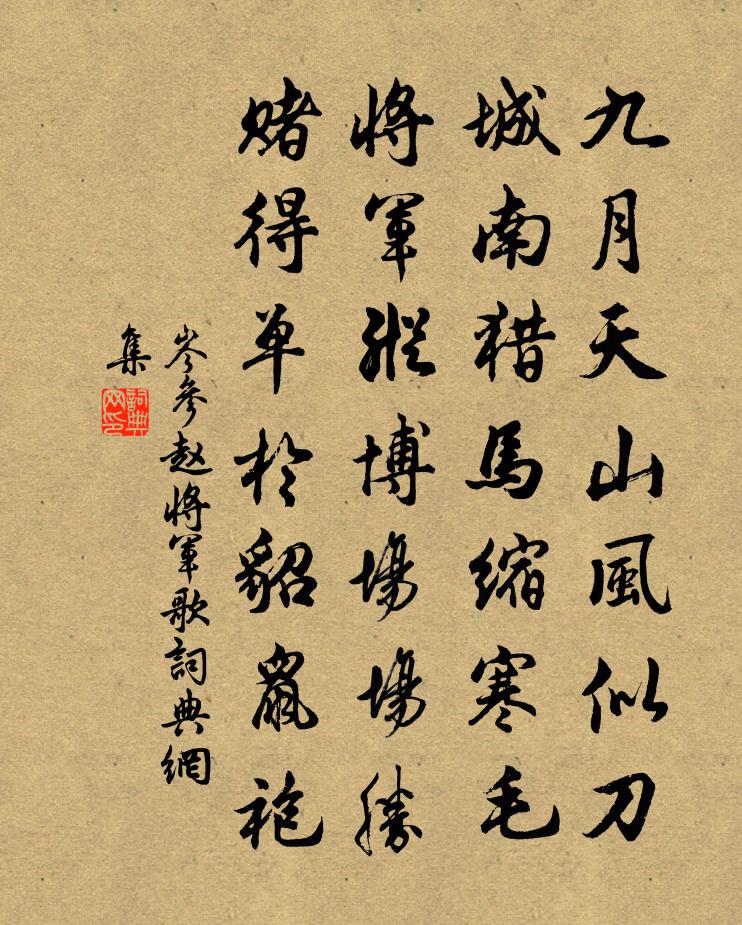 九月天山風似刀
城南猎馬缩寒毛
將軍縱博場場勝
赌得单於貂鼠袍
岑參赵將軍歌詞典網
集
詞典
网印